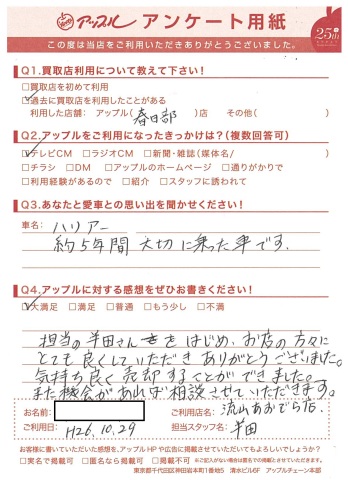 アップル アンケート用紙
25th
この度は当店をご利用いただきありがとうございました。
Q1.買取店利用について教えて下さい！
□買取店を初めて利用
☑過去に買取店を利用したことがある
利用した店舗： アップル( 春日部 )店 その他( )
Q2.アップルをご利用になったきっかけは？(複数回答可)
☑テレビCM □ラジオCM □新聞・雑誌(媒体名/ )
□チラシ □DM □アップルのホームページ □通りがかりで
□利用経験があるので □紹介 □スタッフに誘われて
Q3.あなたと愛車との思い出を聞かせください！
車名： ハリアー
約5年間 大切に乗った車です.
Q4.アップルに対する感想をぜひお書きください！
☑大満足 □満足 □普通 □もう少し □不満
担当の半田さんをはじめ、お店の方々に
とても良くしていただき ありがとうございました。
気持ち良く売却することができました。
また機会があれば相談させていただきます。
お名前： ご利用店名： 流山おおたら店.
ご利用日： H26.10.29 担当スタッフ名： 半田
お客様に書いていただいた感想を、アップルHPや広告に掲載させていただいてもよろしいでしょうか？
□実名で掲載可 □匿名なら掲載可 □掲載不可 ※ご記入がない場合は匿名での掲載とさせていただきます。
東京都千代田区神田岩本町1番地5 清水ビル6F アップルチェーン本部